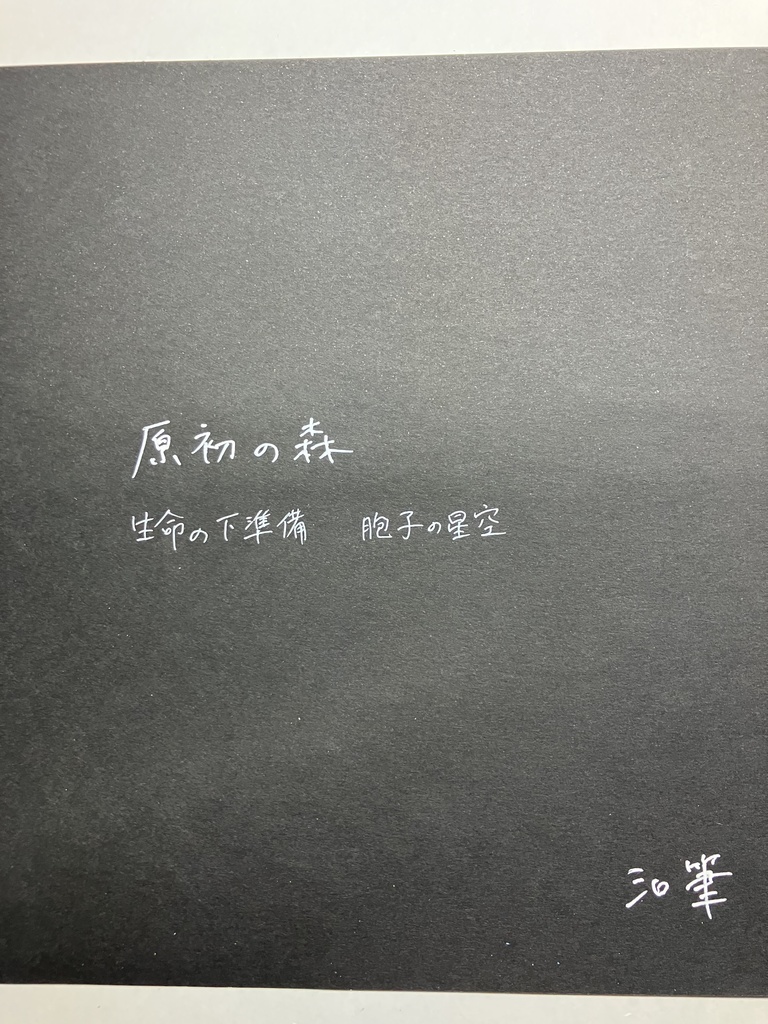 原初の森
生命の下準備　胞子の星空
筆